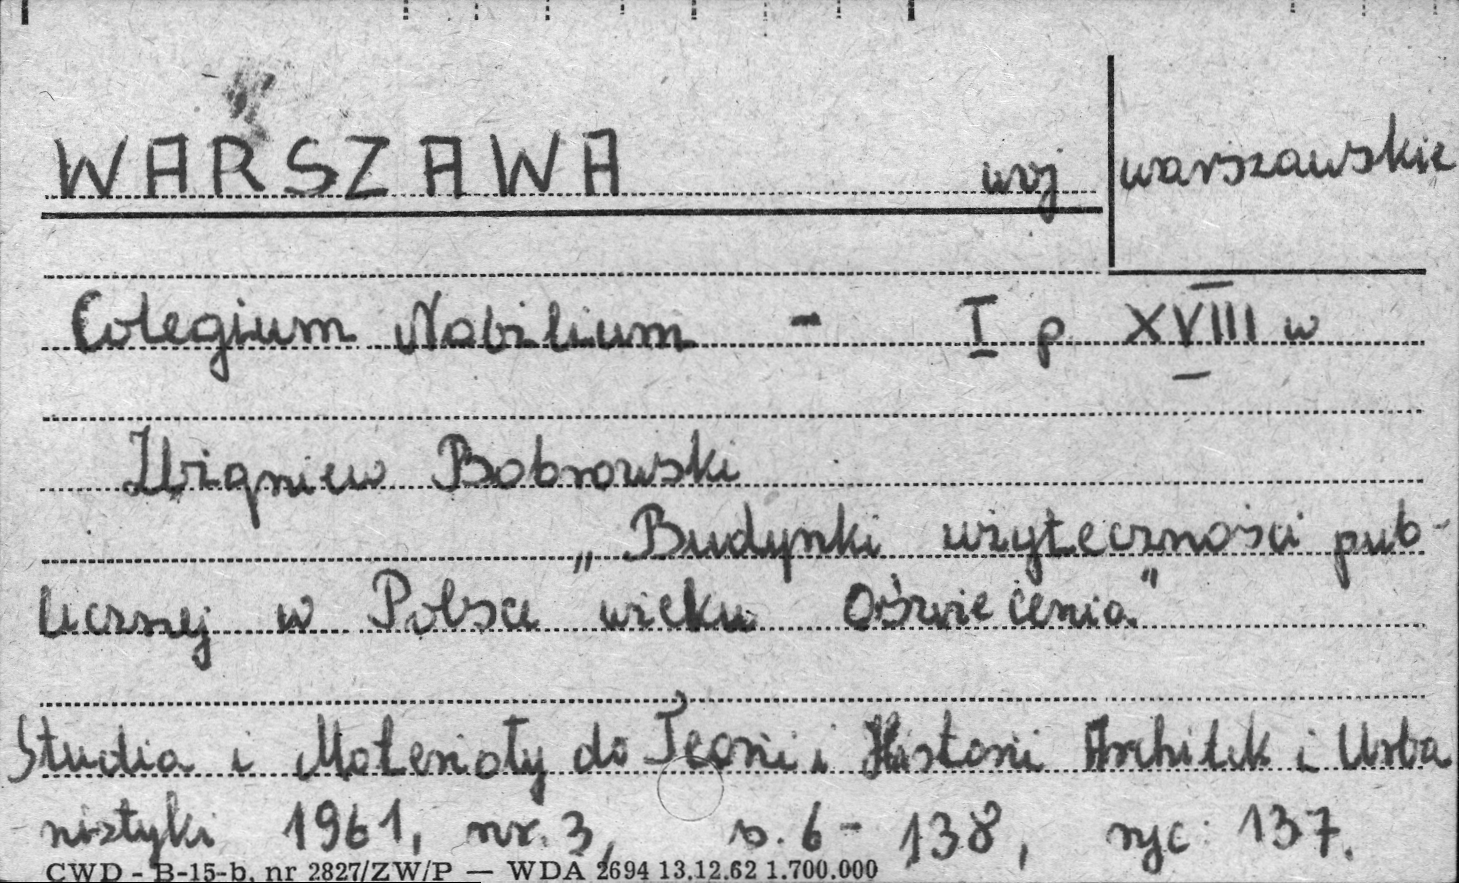 WARSZAWA woj warszawskie
Colegium Nobilium - I p XVIII w
Zbigniew Bobrowski
„Budynki użyteczności pub-
licznej w Polsce wieku Oświecenia."
Studia i Materiały do Teorii i Historii Architek i Urba
nistyki 1961, nr. 3, s. 6 - 138, ryc. 137.
CWD - B-15-b, nr 2827/ZW/P — WDA 2694 13.12.62 1.700.000